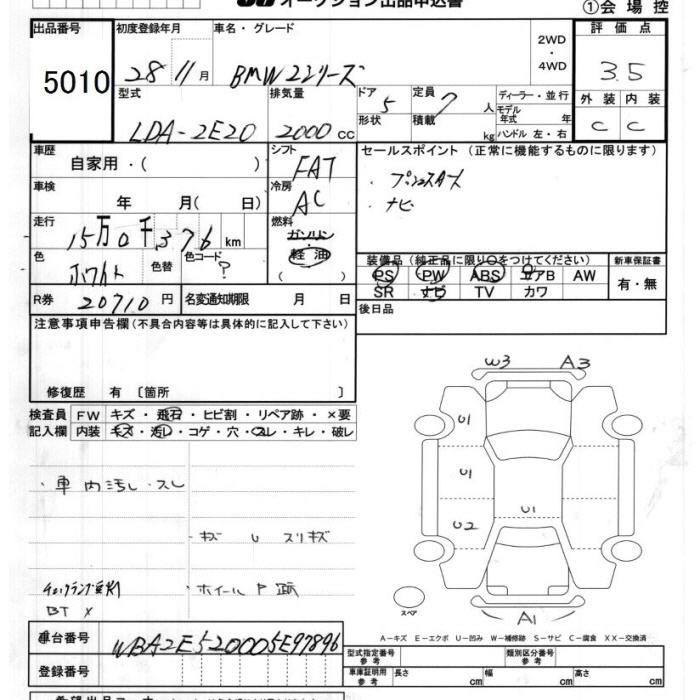 オークション出品申込書
①会場控
出品番号
5010
初度登録年月
28 11月
車名・グレード
BMW2シリーズ
2WD
・
4WD
評価点
3.5
外装 内装
C C
型式
LDA-2E20
排気量
2000cc
ドア 5
形状
定員 7人
積載 kg
ディーラー・並行
モデル年式 年
ハンドル 左・右
車歴
自家用・( )
シフト
FAT
セールスポイント(正常に機能するものに限ります)
・プッシュスタート
・ナビ
車検
年 月( 日)
冷房
AC
走行
15万0千376km
燃料
ガソリン
・
軽油
( )
色
ホワイト
色替
色コード
?
装備品(純正品に限り○をつけてください)
PS PW ABS エアB AW
SR ナビ TV カワ
新車保証書
有・無
R券 20710円
名変通知期限 月 日
後日品
注意事項申告欄(不具合内容等は具体的に記入して下さい)
修復歴 有 〔箇所 〕
検査員記入欄
FW キズ・飛石・ヒビ割・リペア跡・×要
内装 キズ・汚レ・コゲ・穴・スレ・キレ・破レ
・車内汚し・スレ
・キズ U スリキズ
・ホイールP
BT X
W3 A3
U1
U1
U2 U1
A1
スペア
A-キズ E-エクボ U-凹み W-補修跡 S-サビ C-腐食 XX-交換済
車台番号
WBA2E520005E97896
登録番号
型式指定番号 参考
類別区分番号 参考
車庫証明用 参考
長さ cm 幅 cm 高さ cm